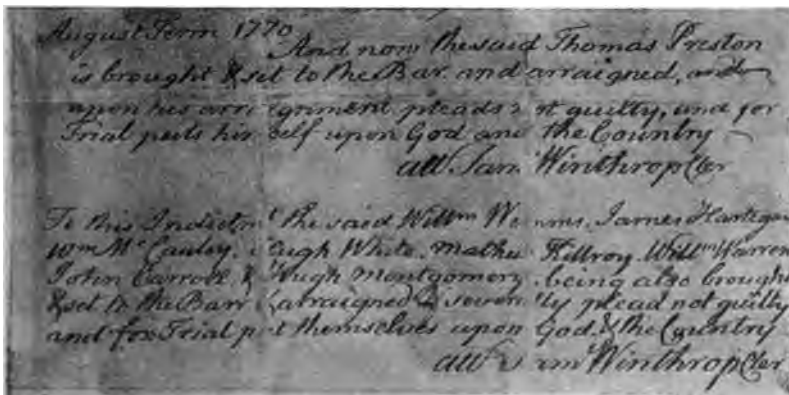 August Term 1770
And now the said Thomas Preston
is brought & set to the Bar and arraigned, and
upon his arr gnment pleads n t guilty, and for
Trial puts him self upon God and the Country
att. Sam Winthrop Cler
To this Indictmt the said Willm We ms. James Hartegan
Wm McCauley, Hugh White, Mathew Killroy Willm Warren
John Carroll & Hugh Montgomery being also brought
& set to the Barr & arraigned & severally plead not guilty
and for Trial put themselves upon God & the Country
att. Saml Winthrop Cler